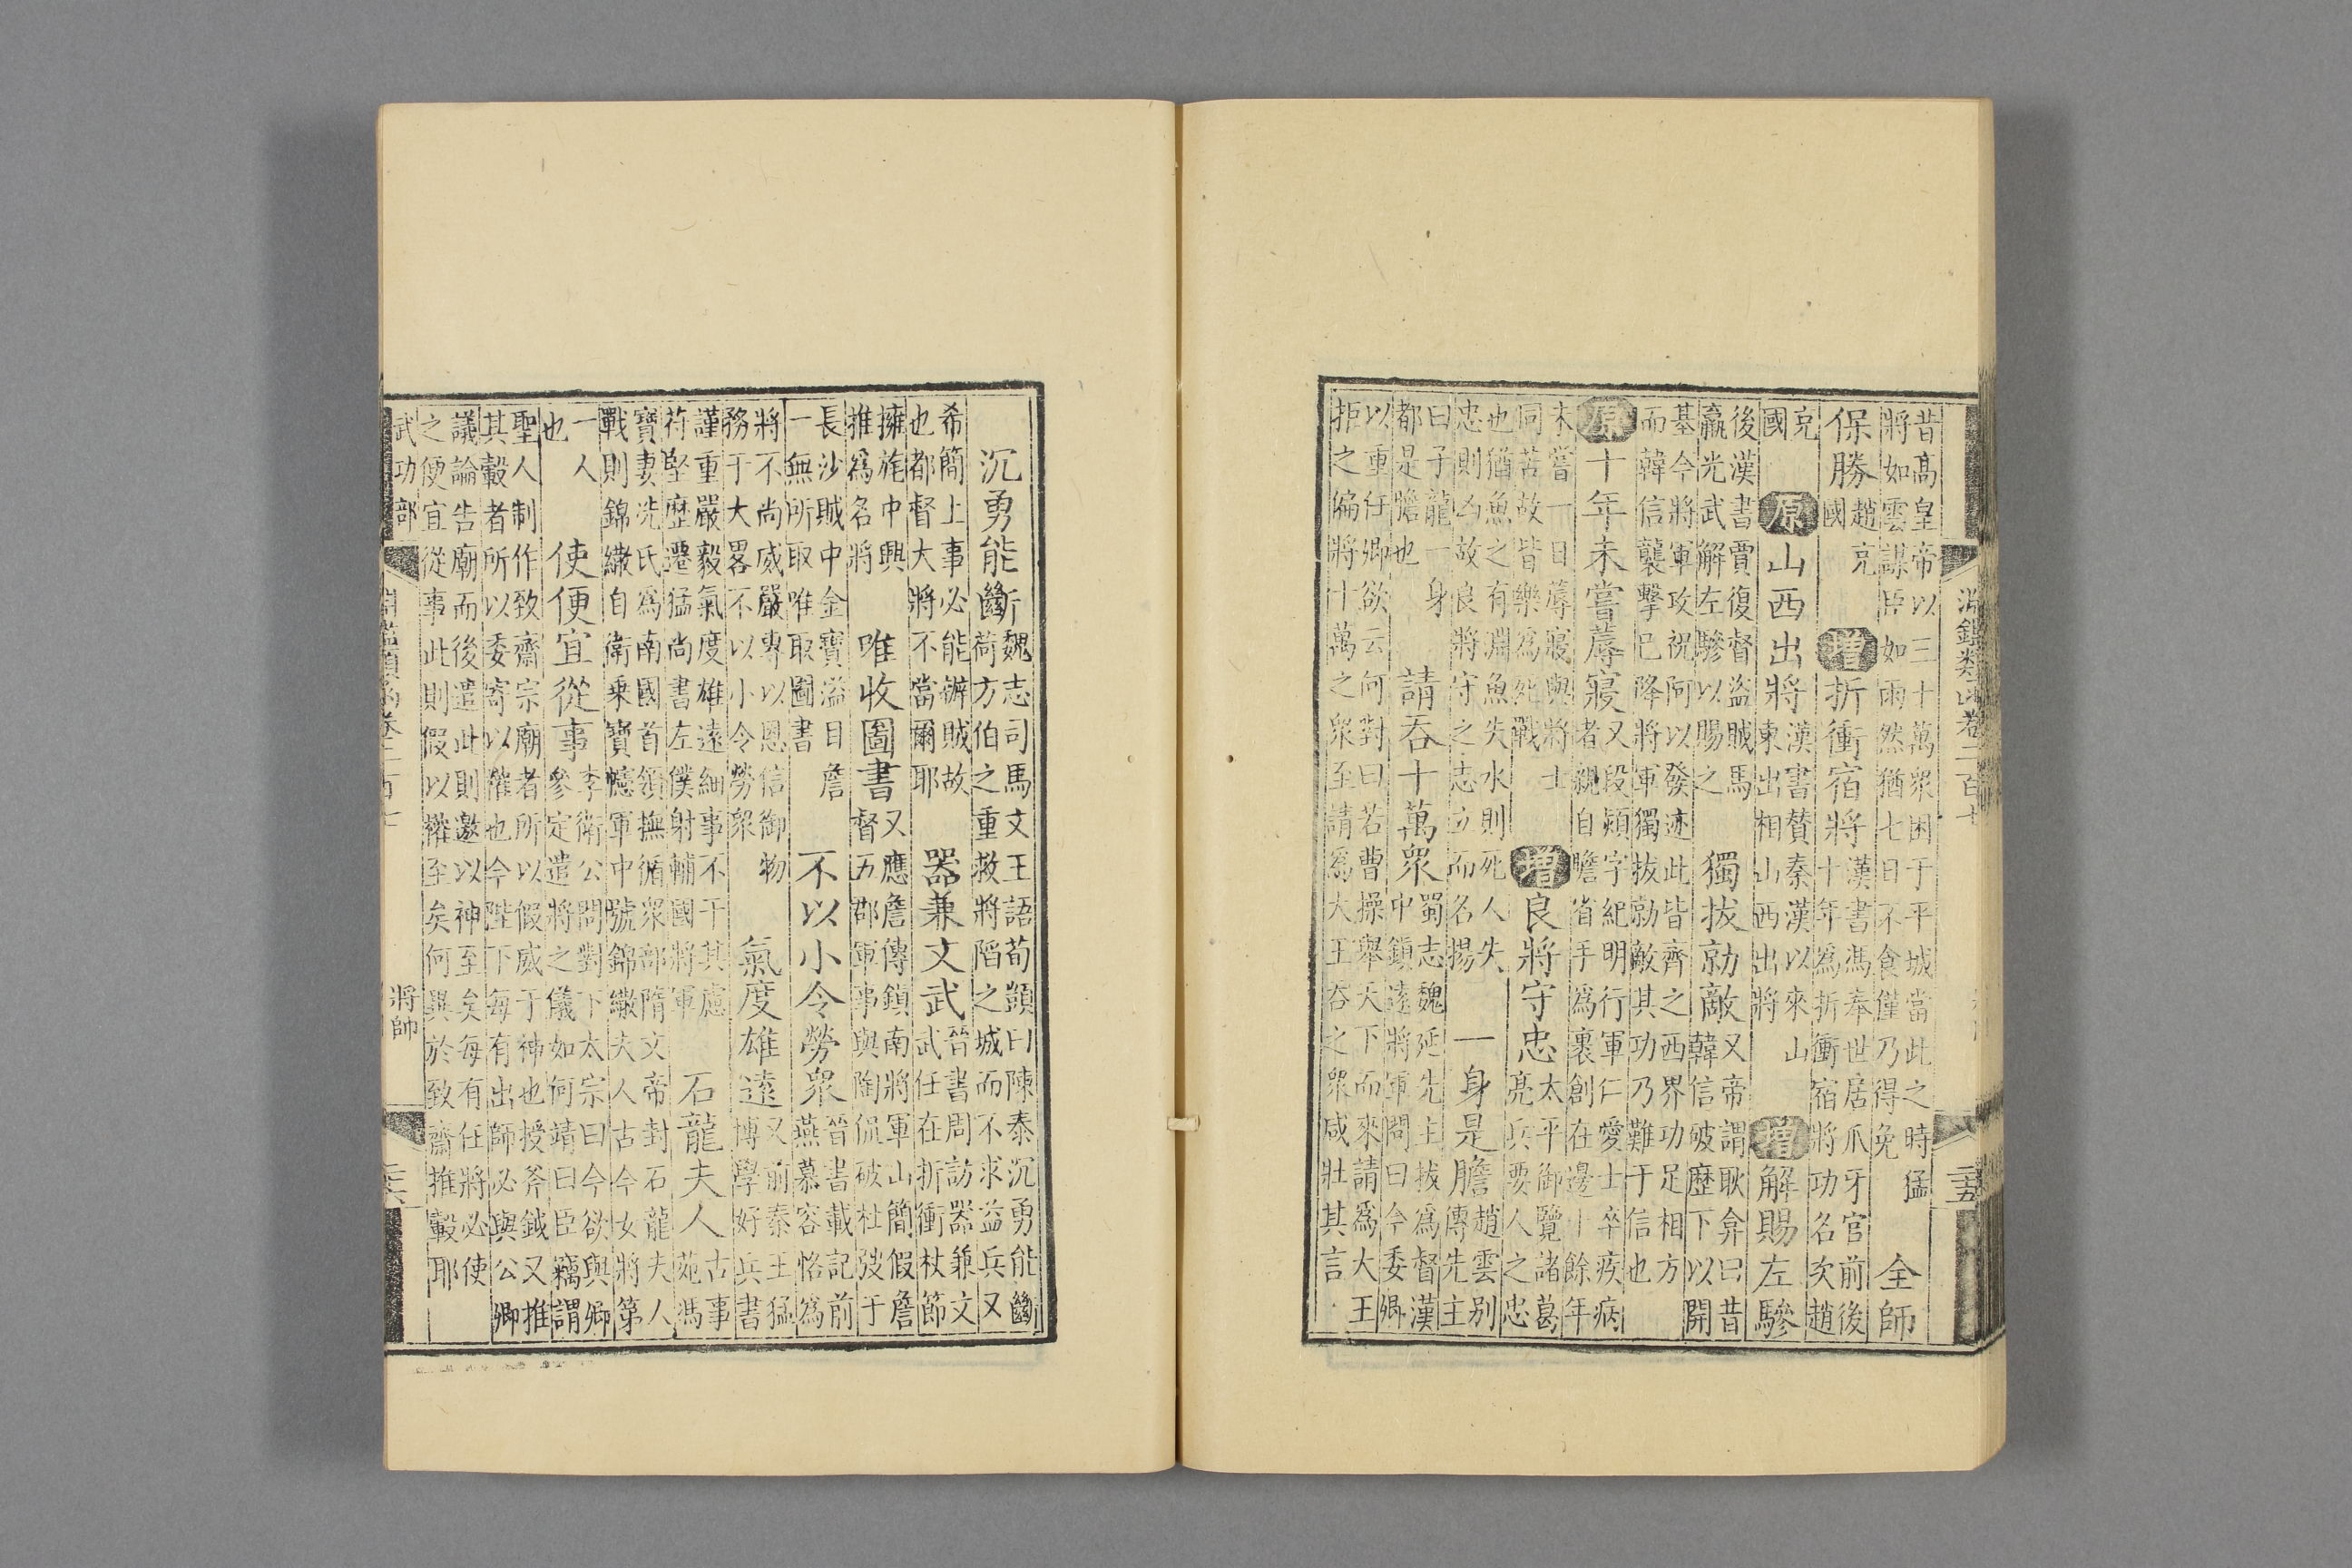 淵鑑類函卷二百十
二五
昔高皇帝以三十萬衆困于平城當此之時猛
將如雲謀臣如雨然猶七日不食僅乃得免
全師
保勝
趙充
國
增折衝宿將
漢書馮奉世居爪牙官前後
十年為折衝宿將功名次趙
充
國
原山西出將
漢書贊秦漢以來山
東出相山西出將
增解賜左驂
後漢書賈復督盜賊馬
羸光武解左驂以賜之
獨拔勍敵
又帝謂耿弇曰昔
韓信破歷下以開
基今將軍攻祝阿以發迹此皆齊之西界功足相方
而韓信襲擊已降將軍獨拔勍敵其功乃難于信也
原十年未嘗蓐寢
又段熲字紀明行軍仁愛士卒疾病
者親自瞻省手為裹創在邊十餘年
未嘗一日蓐寢與將士
同苦故皆樂為死戰
增良將守忠
太平御覽諸葛
亮兵要人之忠
也猶魚之有淵魚失水則死人失
忠則凶故良將守之志立而名揚
一身是膽
趙雲別
傳先主
曰子龍一身
都是膽也
請吞十萬衆
蜀志魏延先主拔為督漢
中鎮遠將軍問曰今委卿
以重任卿欲云何對曰若曹操舉天下而來請為大王
拒之偏將十萬之衆至請為大王吞之衆咸壯其言
沉勇能斷
魏志司馬文王語荀顗曰陳泰沉勇能斷
荷方伯之重救將陷之城而不求益兵又
希簡上事必能辦賊故
也都督大將不當爾耶
器兼文武
晉書周訪器兼文
武任在折衝杖節
擁旄中興
推為名將
唯收圖書
又應詹傳鎮南將軍山簡假詹
督五郡軍事與陶侃破杜弢于
長沙賊中金寶溢目詹
一無所取唯取圖書
不以小令勞衆
晉書載記前
燕慕容恪為
將不尚威嚴專以恩信御物
務于大畧不以小令勞衆
氣度雄遠
又前秦王猛
博學好兵書
謹重嚴毅氣度雄遠細事不干其慮
苻堅歷遷猛尚書左僕射輔國將軍
石龍夫人
古事
苑馮
寶妻冼氏為南國首領撫循衆部隋文帝封石龍夫人
戰則錦繖自衛乘寶幰軍中號錦繖夫人古今女將第
一人
也
使便宜從事
李衛公問對下太宗曰今欲與卿
參定遣將之儀如何靖曰臣竊謂
聖人制作致齋宗廟者所以假威于神也授斧鉞又推
其轂者所以委寄以權也今陛下每有出師必與公卿
議論告廟而後遣此則邀以神至矣每有任將必使
之便宜從事此則假以權至矣何異於致齋推轂耶
武功部
淵鑑類函卷二百十
將帥
二六